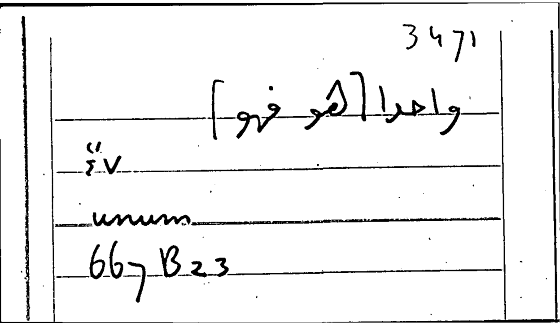 3471
واحدا [هو فهو]
ἕν
unum
667 B 23